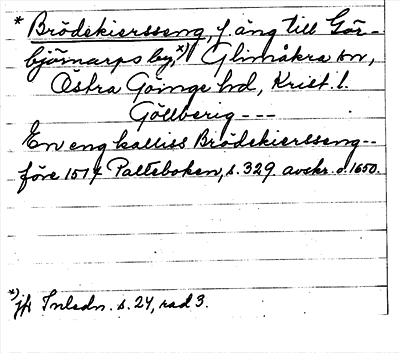 * Brödekiersseng, f äng till Gör-
bjömarps by,*) Glimåkra sn,
Östra Göinge hd, Krist. l.
Göllberig ---
En eng kalliss Brödekiersseng --
före 1514 Palteboken, s. 329 avskr. o. 1650.
*) jfr Inledn. s. 24, rad 3.